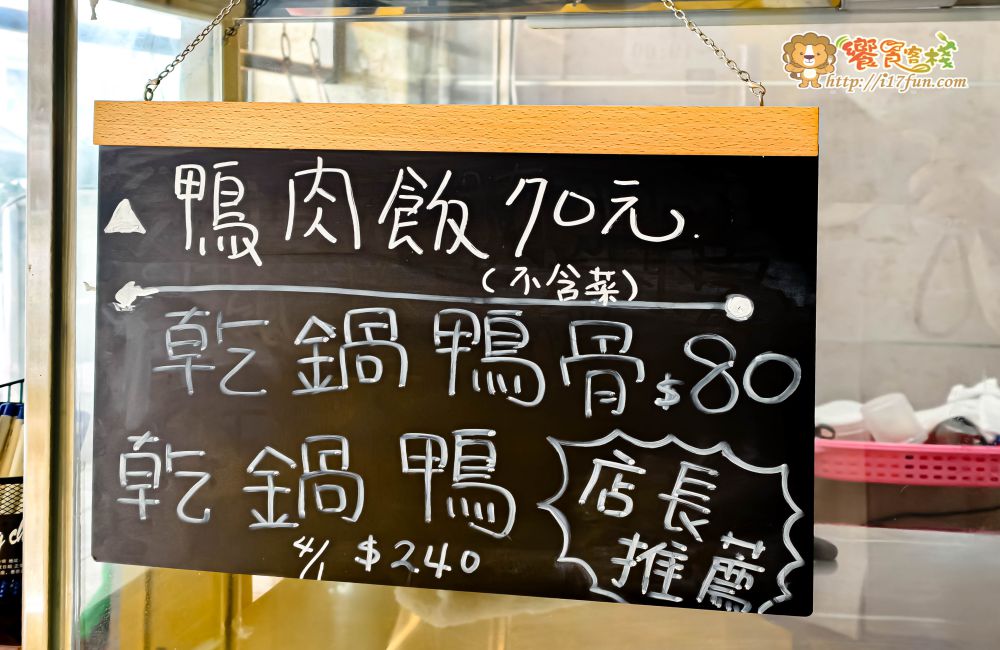 饗食客棧
http://i17fun.com
▲ 鴨肉飯 70元.
(不含菜)
乾鍋鴨骨 $80
乾鍋鴨
4/1 $240
店長
推薦